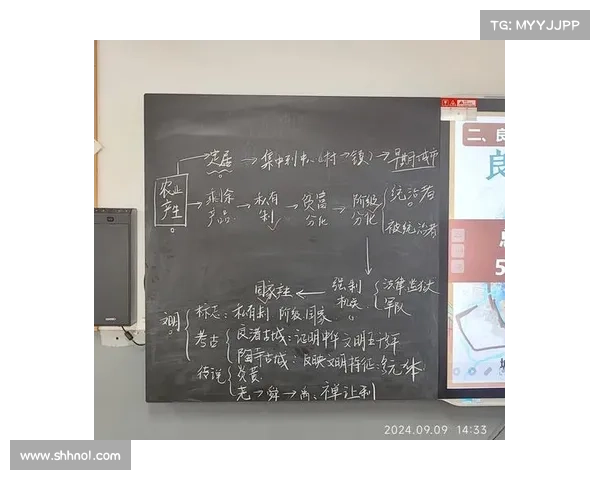 TG: MYYJJPP
定居→集中到木(村→镇)→早期城市
农业产生
剩余产品→私有制→贫富分化→阶级分化
统治者
被统治者
国家←强制机关
法律 监狱
军队
文明
标志:私有制 阶级 国家
考古
良渚古城:证明中华文明五千年
陶寺古城:反映文明特征:多元一体
传说
炎黄
尧→舜→禹:禅让制
二、良
良
5
2024.09.09 14:33
www.shhnol.com